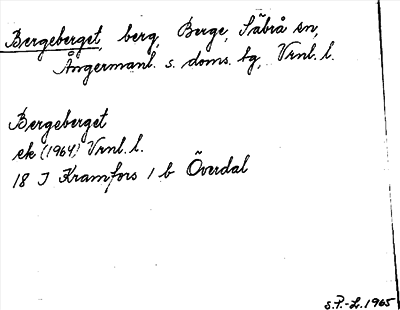 Bergeberget, berg, Berge, Säbrå sn,
Ångermanl. s. doms. tg, Vrnl. l.
Bergeberget
ek (1964) Vrnl. l.
18 J Kramfors 1 b Överdal
S.P.-L. 1965